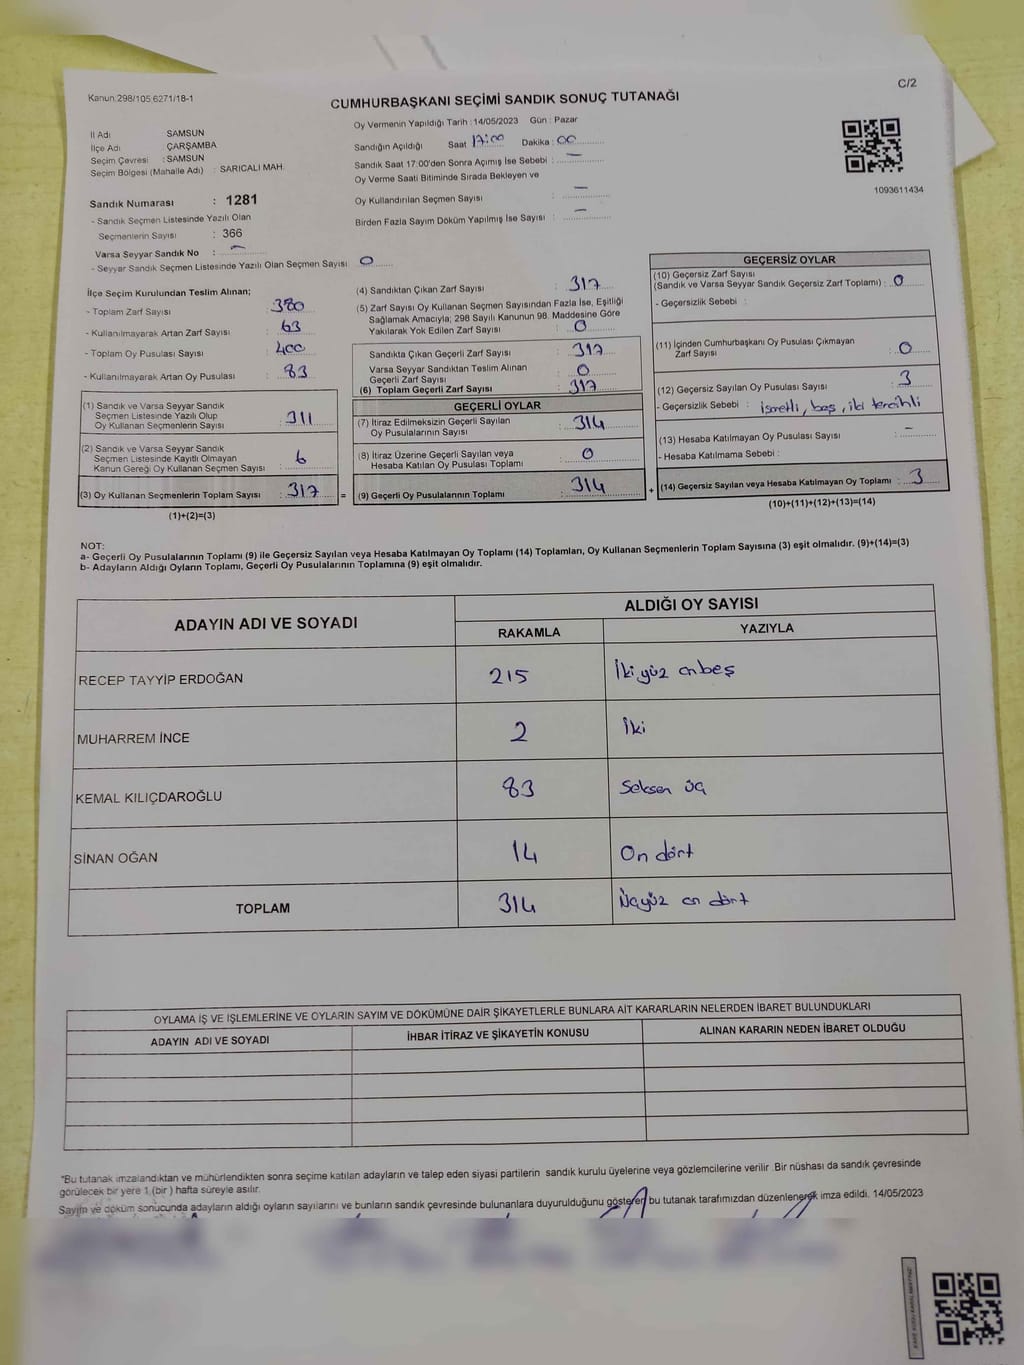 C/2
Kanun 298/105 6271/18-1
CUMHURBAŞKANI SEÇİMİ SANDIK SONUÇ TUTANAĞI
İl Adı SAMSUN
İlçe Adı ÇARŞAMBA
Seçim Çevresi : SAMSUN
Seçim Bölgesi (Mahalle Adı) : SARICALI MAH.
Sandık Numarası : 1281
- Sandık Seçmen Listesinde Yazılı Olan
Seçmenlerin Sayısı : 366
Varsa Seyyar Sandık No : -
- Seyyar Sandık Seçmen Listesinde Yazılı Olan Seçmen Sayısı : 0
Oy Vermenin Yapıldığı Tarih : 14/05/2023 Gün : Pazar
Sandığın Açıldığı Saat 17:00 Dakika : 00
Sandık Saat 17:00'den Sonra Açımış İse Sebebi : -
Oy Verme Saati Bitiminde Sırada Bekleyen ve
Oy Kullandırılan Seçmen Sayısı : -
Birden Fazla Sayım Döküm Yapılmış İse Sayısı : -
1093611434
İlçe Seçim Kurulundan Teslim Alınan;
- Toplam Zarf Sayısı : 380
- Kullanılmayarak Artan Zarf Sayısı : 63
- Toplam Oy Pusulası Sayısı : 400
- Kullanılmayarak Artan Oy Pusulası : 83
(1) Sandık ve Varsa Seyyar Sandık
Seçmen Listesinde Yazılı Olup
Oy Kullanan Seçmenlerin Sayısı : 311
(2) Sandık ve Varsa Seyyar Sandık
Seçmen Listesinde Kayıtlı Olmayan
Kanun Gereği Oy Kullanan Seçmen Sayısı : 6
(3) Oy Kullanan Seçmenlerin Toplam Sayısı : 317 =
(1)+(2)=(3)
(4) Sandıktan Çıkan Zarf Sayısı : 317
(5) Zarf Sayısı Oy Kullanan Seçmen Sayısından Fazla İse, Eşitliği
Sağlamak Amacıyla; 298 Sayılı Kanunun 98. Maddesine Göre
Yakılarak Yok Edilen Zarf Sayısı : 0
Sandıkta Çıkan Geçerli Zarf Sayısı : 317
Varsa Seyyar Sandıktan Teslim Alınan
Geçerli Zarf Sayısı : 0
(6) Toplam Geçerli Zarf Sayısı : 317
GEÇERLİ OYLAR
(7) İtiraz Edilmeksizin Geçerli Sayılan
Oy Pusulalarının Sayısı : 314
(8) İtiraz Üzerine Geçerli Sayılan veya
Hesaba Katılan Oy Pusulası Toplamı : 0
(9) Geçerli Oy Pusulalarının Toplamı : 314 +
GEÇERSİZ OYLAR
(10) Geçersiz Zarf Sayısı
(Sandık ve Varsa Seyyar Sandık Geçersiz Zarf Toplamı) : 0
- Geçersizlik Sebebi :
(11) İçinden Cumhurbaşkanı Oy Pusulası Çıkmayan
Zarf Sayısı : 0
(12) Geçersiz Sayılan Oy Pusulası Sayısı : 3
- Geçersizlik Sebebi : isaretli, boş, iki tercihli
(13) Hesaba Katılmayan Oy Pusulası Sayısı : -
- Hesaba Katılmama Sebebi :
(14) Geçersiz Sayılan veya Hesaba Katılmayan Oy Toplamı : 3
(10)+(11)+(12)+(13)=(14)
NOT:
a- Geçerli Oy Pusulalarının Toplamı (9) ile Geçersiz Sayılan veya Hesaba Katılmayan Oy Toplamı (14) Toplamları, Oy Kullanan Seçmenlerin Toplam Sayısına (3) eşit olmalıdır. (9)+(14)=(3)
b- Adayların Aldığı Oyların Toplamı, Geçerli Oy Pusulalarının Toplamına (9) eşit olmalıdır.
ADAYIN ADI VE SOYADI ALDIĞI OY SAYISI
RAKAMLA YAZIYLA
RECEP TAYYİP ERDOĞAN 215 İki yüz onbeş
MUHARREM İNCE 2 İki
KEMAL KILIÇDAROĞLU 83 Seksen üç
SİNAN OĞAN 14 On dört
TOPLAM 314 Üçyüz on dört
OYLAMA İŞ VE İŞLEMLERİNE VE OYLARIN SAYIM VE DÖKÜMÜNE DAİR ŞİKAYETLERLE BUNLARA AİT KARARLARIN NELERDEN İBARET BULUNDUKLARI
ADAYIN ADI VE SOYADI İHBAR İTİRAZ VE ŞİKAYETİN KONUSU ALINAN KARARIN NEDEN İBARET OLDUĞU
*Bu tutanak imzalandıktan ve mühürlendikten sonra seçime katılan adayların ve talep eden siyasi partilerin sandık kurulu üyelerine veya gözlemcilerine verilir. Bir nüshası da sandık çevresinde
görülecek bir yere 1 (bir) hafta süreyle asılır.
Sayım ve döküm sonucunda adayların aldığı oyların sayılarını ve bunların sandık çevresinde bulunanlara duyurulduğunu gösteren bu tutanak tarafımızdan düzenlenerek imza edildi. 14/05/2023